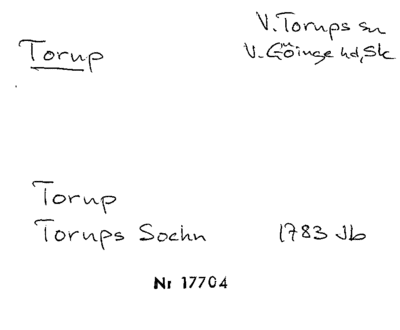 Torup
V. Torups sn
V. Göinge hd, Sk
Torup
Torups Sochn 1783 Jb
Nr 17704